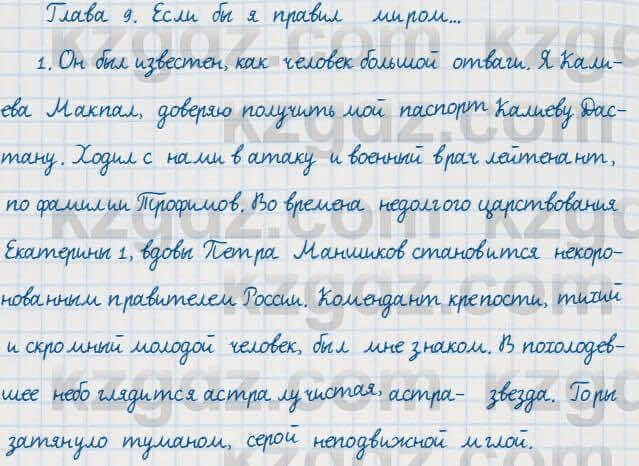 Глава 9. Если бы я правил миром...
1. Он был известен, как человек большой отваги. Я Кали-
ева Макпал, доверяю получить мой паспорт Калиеву Дас-
тану. Ходил с нами в атаку и военный врач лейтенант,
по фамилии Трофимов. Во времена недолгого царствования
Екатерины 1, вдовы Петра Маншиков становится некоро-
нованным правителем России. Комендант крепости, тихий
и скромный молодой человек, был мне знаком. В похолодев-
шее небо глядится астра лучистая, астра- звезда. Горы
затянуло туманом, серой неподвижной мглой.
kzgdz.com